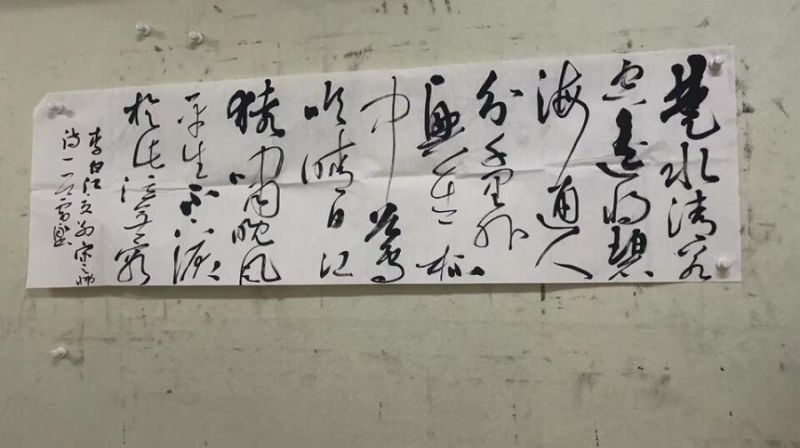 楚水清若
空遥将碧
海通人
分千里外
興在一杯
中谷鸟
吟晴日江
猿啸晚风
平生不下泪
於此泣無穷
李白江夏别宋之悌
诗一首